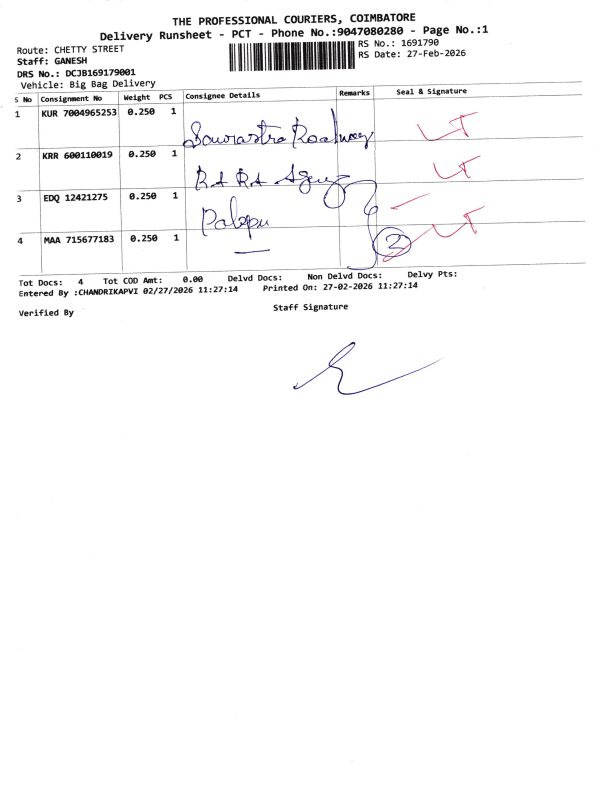 THE PROFESSIONAL COURIERS, COIMBATORE
Delivery Runsheet - PCT - Phone No.:9047080280 - Page No.:1
Route: CHETTY STREET
RS No.: 1691790
Staff: GANESH
RS Date: 27-Feb-2026
DRS No.: DCJB169179001
Vehicle: Big Bag Delivery
S No Consignment No Weight PCS Consignee Details Remarks Seal & Signature
1 KUR 7004965253 0.250 1 Sourastra Roadways
2 KRR 600110019 0.250 1 RA RA Agency
3 EDQ 12421275 0.250 1
4 MAA 715677183 0.250 1 2
Tot Docs: 4 Tot COD Amt: 0.00 Delvd Docs: Non Delvd Docs: Delvy Pts:
Entered By :CHANDRIKAPVI 02/27/2026 11:27:14 Printed On: 27-02-2026 11:27:14
Verified By Staff Signature